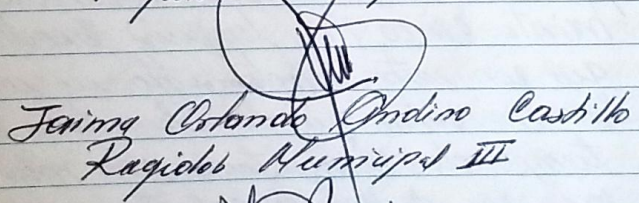 Jaime Orlando Ondino Castillo
Regidor Municipal III